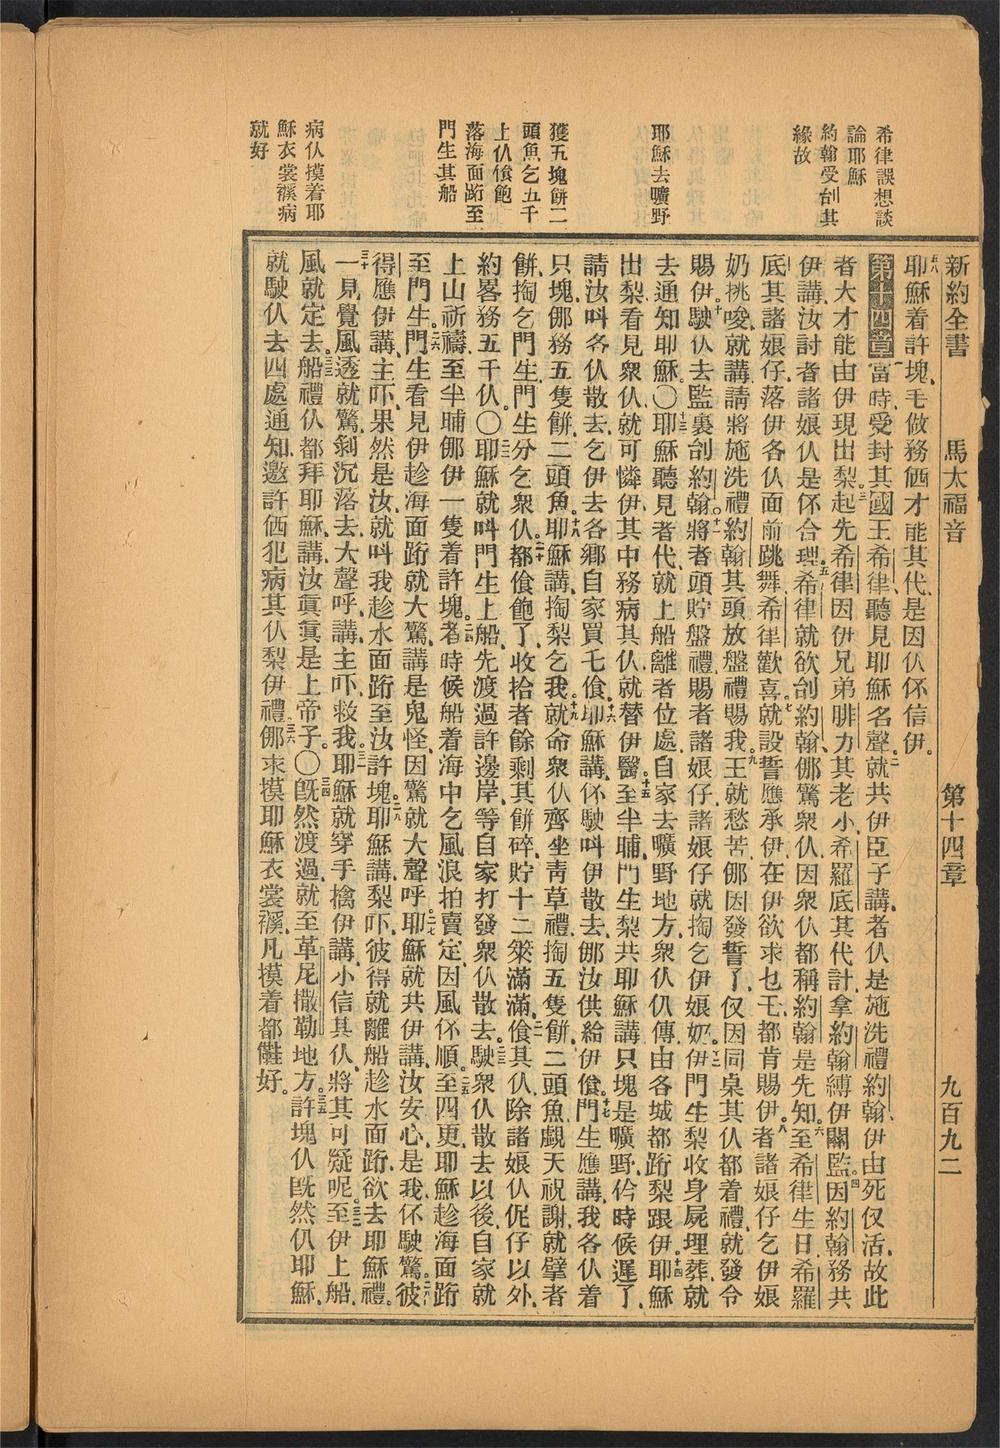 新約全書　馬太福音　第十四章　九百九二
希律誤想談
論耶穌
約翰受刣其
緣故
耶穌去曠野
獲五塊餅二
頭魚乞五千
上仈飽
落海面跡至
門生其船
病仈摸着耶
穌衣裳襆病
就好
五八耶穌着許塊、毛做務価才能其代、是因仈伓信伊。
第十四章 一當時受封其國王希律、聽見耶穌名聲、二就共伊臣子講、者仈是施洗禮約翰、伊由死仅活、故此
者大才能由伊現出梨起、三先希律因伊兄弟腓力其老小、希羅底其代計、拿約翰縛伊關監。四因約翰務共
伊講、汝討者諸娘仈是伓合理。五希律就欲刣約翰、儚驚衆仈、因衆仈都稱約翰是先知。六至希律生日、希羅
底其諸娘仔、落伊各仈面前跳舞、希律歡喜。七就設誓應承伊、在伊欲求乜乇、都肯賜伊。八者諸娘仔乞伊娘
奶挑唆、就講、請將施洗禮約翰其頭、放盤禮賜我。九王就愁苦、儚因發誓了、仅因同桌其仈都着禮、就發令
賜伊。十駛仈去監裏刣約翰。十一將者頭貯盤禮、賜者諸娘仔、諸娘仔就掏乞伊娘奶。十二伊門生梨收身屍埋葬、就
去通知耶穌。〇十三耶穌聽見者代、就上船離者位處、自家去曠野地方、衆仈仍傳、由各城都跡梨跟伊。十四耶穌
出梨看見衆仈、就可憐伊、其中務病其仈、就替伊醫。十五至半晡、門生梨共耶穌講、只塊是曠野、仱時候遲了、
請汝呌各仈散去、乞伊去各鄉自家買乇食。十六耶穌講、伓駛呌伊散去、儚汝供給伊食。十七門生應講、我各仈着
只塊、儚務五隻餅、二頭魚。十八耶穌講、掏梨乞我。十九就命衆仈齊坐青草禮、掏五隻餅、二頭魚、覷天祝謝、就擘者
餅、掏乞門生、門生分乞衆仈。二十都食飽了、收拾者餘剩其餅碎、貯十二筞滿滿。二一食其仈、除諸娘仈伲仔以外、
約畧務五千仈。〇二二耶穌就呌門生上船、先渡過許邊岸、等自家打發衆仈散去。二三駛衆仈散去以後、自家就
上山祈禱、至半晡、儚伊一隻着許塊。二四者時候船着海中、乞風浪拍賣定、因風伓順。二五至四更、耶穌趁海面跡
至門生。二六門生看見伊趁海面跡、就大驚、講是鬼怪、因驚就大聲呼。二七耶穌就共伊講、汝安心、是我、伓駛驚。二八彼
得應伊講、主吓、果然是汝、就呌我趁水面跡至汝許塊。二九耶穌講、梨吓、彼得就離船趁水面跡、欲去耶穌禮。
三十一見覺風透就驚、剩沉落去、大聲呼、講、主吓、救我。三一耶穌就穿手擒伊講、小信其仈、將其可疑呢。三二至伊上船、
風就定去。三三船禮仈都拜耶穌、講、汝眞眞是上帝子。〇三四旣然渡過、就至革尼撒勒地方。三五許塊仈旣然仍耶穌、
就駛仈去四處通知、邀許価犯病其仈梨伊禮、三六儚求摸耶穌衣裳襆、凡摸着都𠆧好。